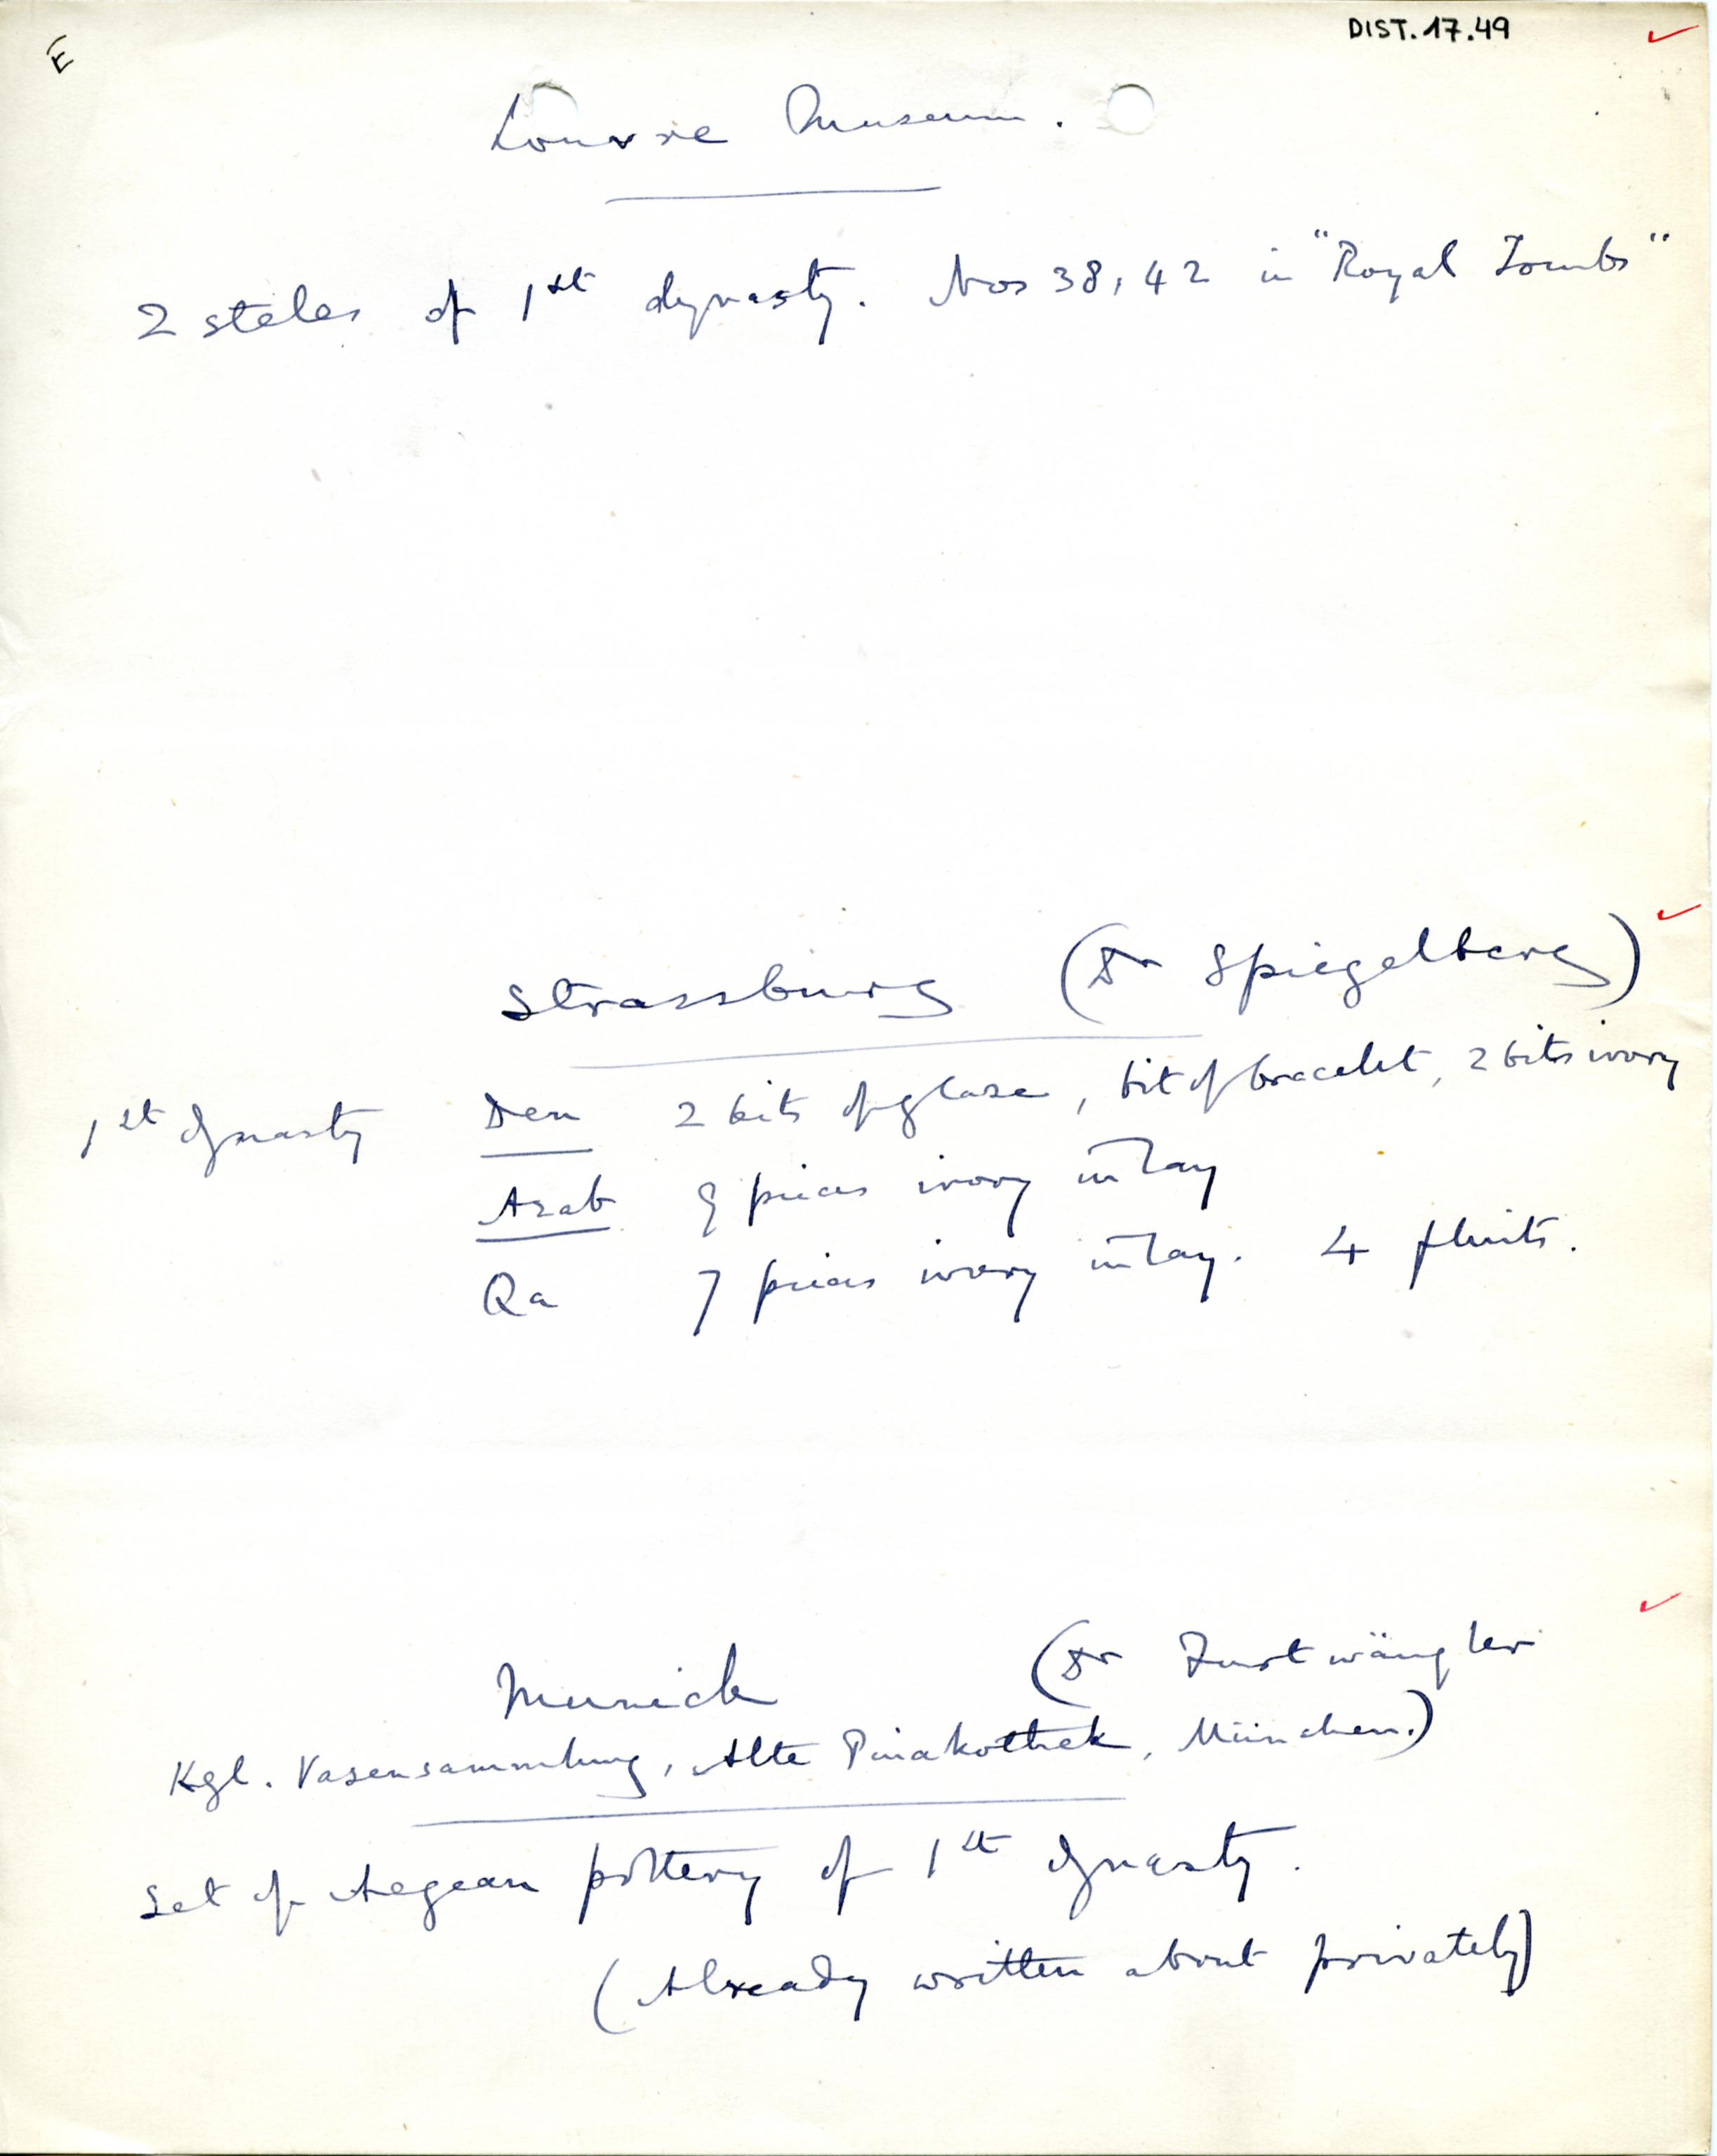 E
DIST. 17.49
Louvre Museum.
2 steles of 1st dynasty. Nos 38, 42 in "Royal Tombs"
Strassburg (Dr Spiegelberg)
1st dynasty Den 2 bits of glaze, bit of bracelet, 2 bits ivory
Azab 9 pieces ivory inlay
Qa 7 pieces ivory inlay. 4 flints.
Munich (Dr Furtwängler
Kgl. Vasensammlung, Alte Pinakothek, München.)
Set of Aegean pottery of 1st dynasty.
(Already written about privately)